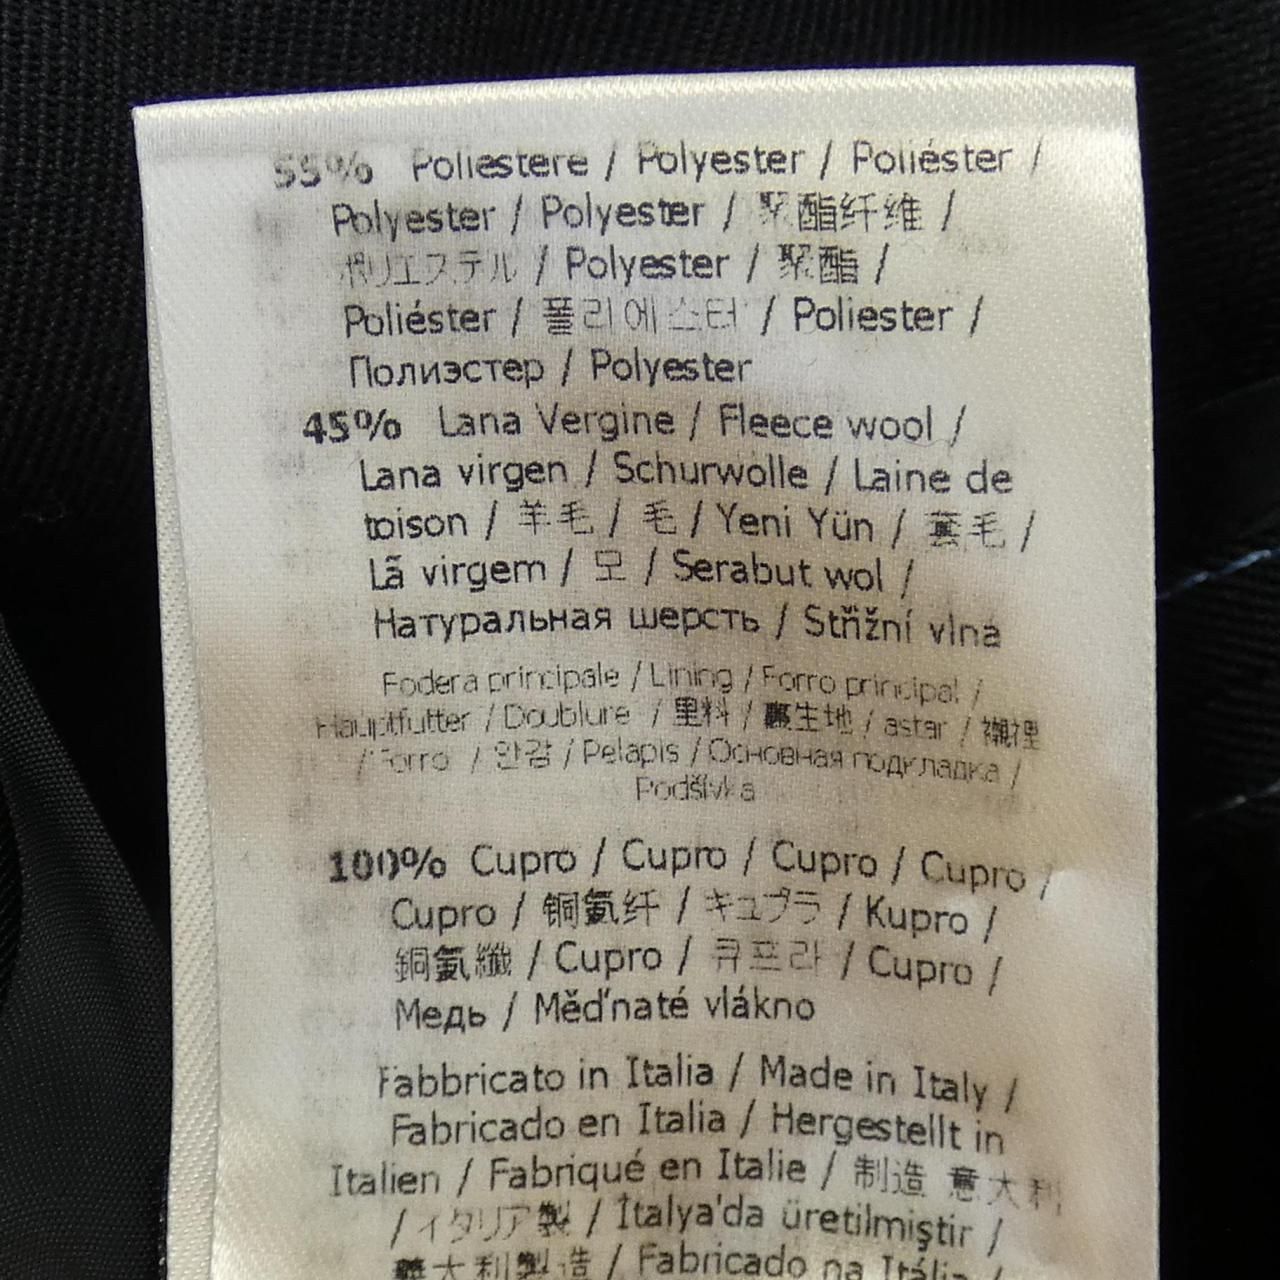 55% Poliestere / Polyester / Poliéster /
Polyester / Polyester / 聚酯纤维 /
ポリエステル / Polyester / 聚酯 /
Poliéster / 폴리에스터 / Poliester /
Полиэстер / Polyester
45% Lana Vergine / Fleece wool /
Lana virgen / Schurwolle / Laine de
toison / 羊毛 / 毛 / Yeni Yün / 羊毛 /
Lã virgem / 모 / Serabut wol /
Натуральная шерсть / Střižní vlna
Fodera principale / Lining / Forro principal /
Hauptfutter / Doublure / 里料 / 裏生地 / astar / 襯裡
/ Forro / 안감 / Pelapis / Основная подкладка /
Podšívka
100% Cupro / Cupro / Cupro / Cupro /
Cupro / 铜氨纤 / キュプラ / Kupro /
銅氨纖 / Cupro / 큐프라 / Cupro /
Медь / Měďnaté vlákno
Fabbricato in Italia / Made in Italy /
Fabricado en Italia / Hergestellt in
Italien / Fabriqué en Italie / 制造 意大利
/ イタリア製 / İtalya'da üretilmiştir /
義大利製造 / Fabricado na Itália /